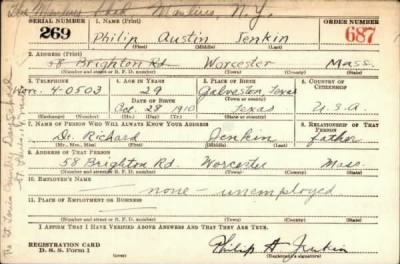 The Manlius School Manlius, N.Y.
SERIAL NUMBER 1. NAME (Print) ORDER NUMBER
269 Philip Austin Jenkin 687
(First) (Middle) (Last)
2. ADDRESS (Print)
58 Brighton Rd Worcester Mass.
(Number and street or R. F. D. number) (Town) (County) (State)
3. TELEPHONE 4. AGE IN YEARS 5. PLACE OF BIRTH 6. COUNTRY OF CITIZENSHIP
Worc. 4-0503 29 Galveston, Texas
DATE OF BIRTH
Oct. 28 1910 Texas U.S.A.
(Mo.) (Day) (Yr.) (State or country)
7. NAME OF PERSON WHO WILL ALWAYS KNOW YOUR ADDRESS 8. RELATIONSHIP OF THAT PERSON
Dr. Richard Jenkin father
(Mr., Mrs., Miss) (First) (Middle) (Last)
9. ADDRESS OF THAT PERSON
58 Brighton Rd. Worcester Mass.
(Number and street or R. F. D. number) (Town) (County) (State)
10. EMPLOYER'S NAME
none - unemployed
11. PLACE OF EMPLOYMENT OR BUSINESS
(Number and street or R. F. D. number) (Town) (County) (State)
I AFFIRM THAT I HAVE VERIFIED ABOVE ANSWERS AND THAT THEY ARE TRUE.
REGISTRATION CARD
D. S. S. Form 1
Philip A Jenkin
(Registrant's signature)
The St. Louis Country Day School
St. Louis